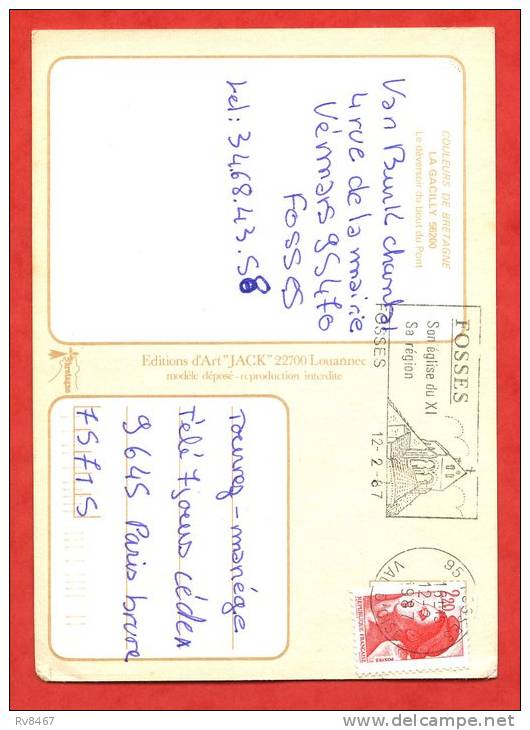 COULEURS DE BRETAGNE
LA GACILLY 56200
Le déversoir du bout du Pont
Van Burik chantal
4 rue de la mairie
Vémars 95470
FOSSES
tel: 34.68.43.58
Bretagne
Editions d'Art "JACK" 22700 Louannec
modèle déposé - reproduction interdite
FOSSES
Son église du XI
Sa région
FOSSES
12-2-87
95 FOSSES
1987
VAL
2,20
REPUBLIQUE FRANÇAISE
POSTES
Tournez-manège
Télé 7 jours cédex
9645 Paris brune
75715
Rv8467
www.delcampe.net